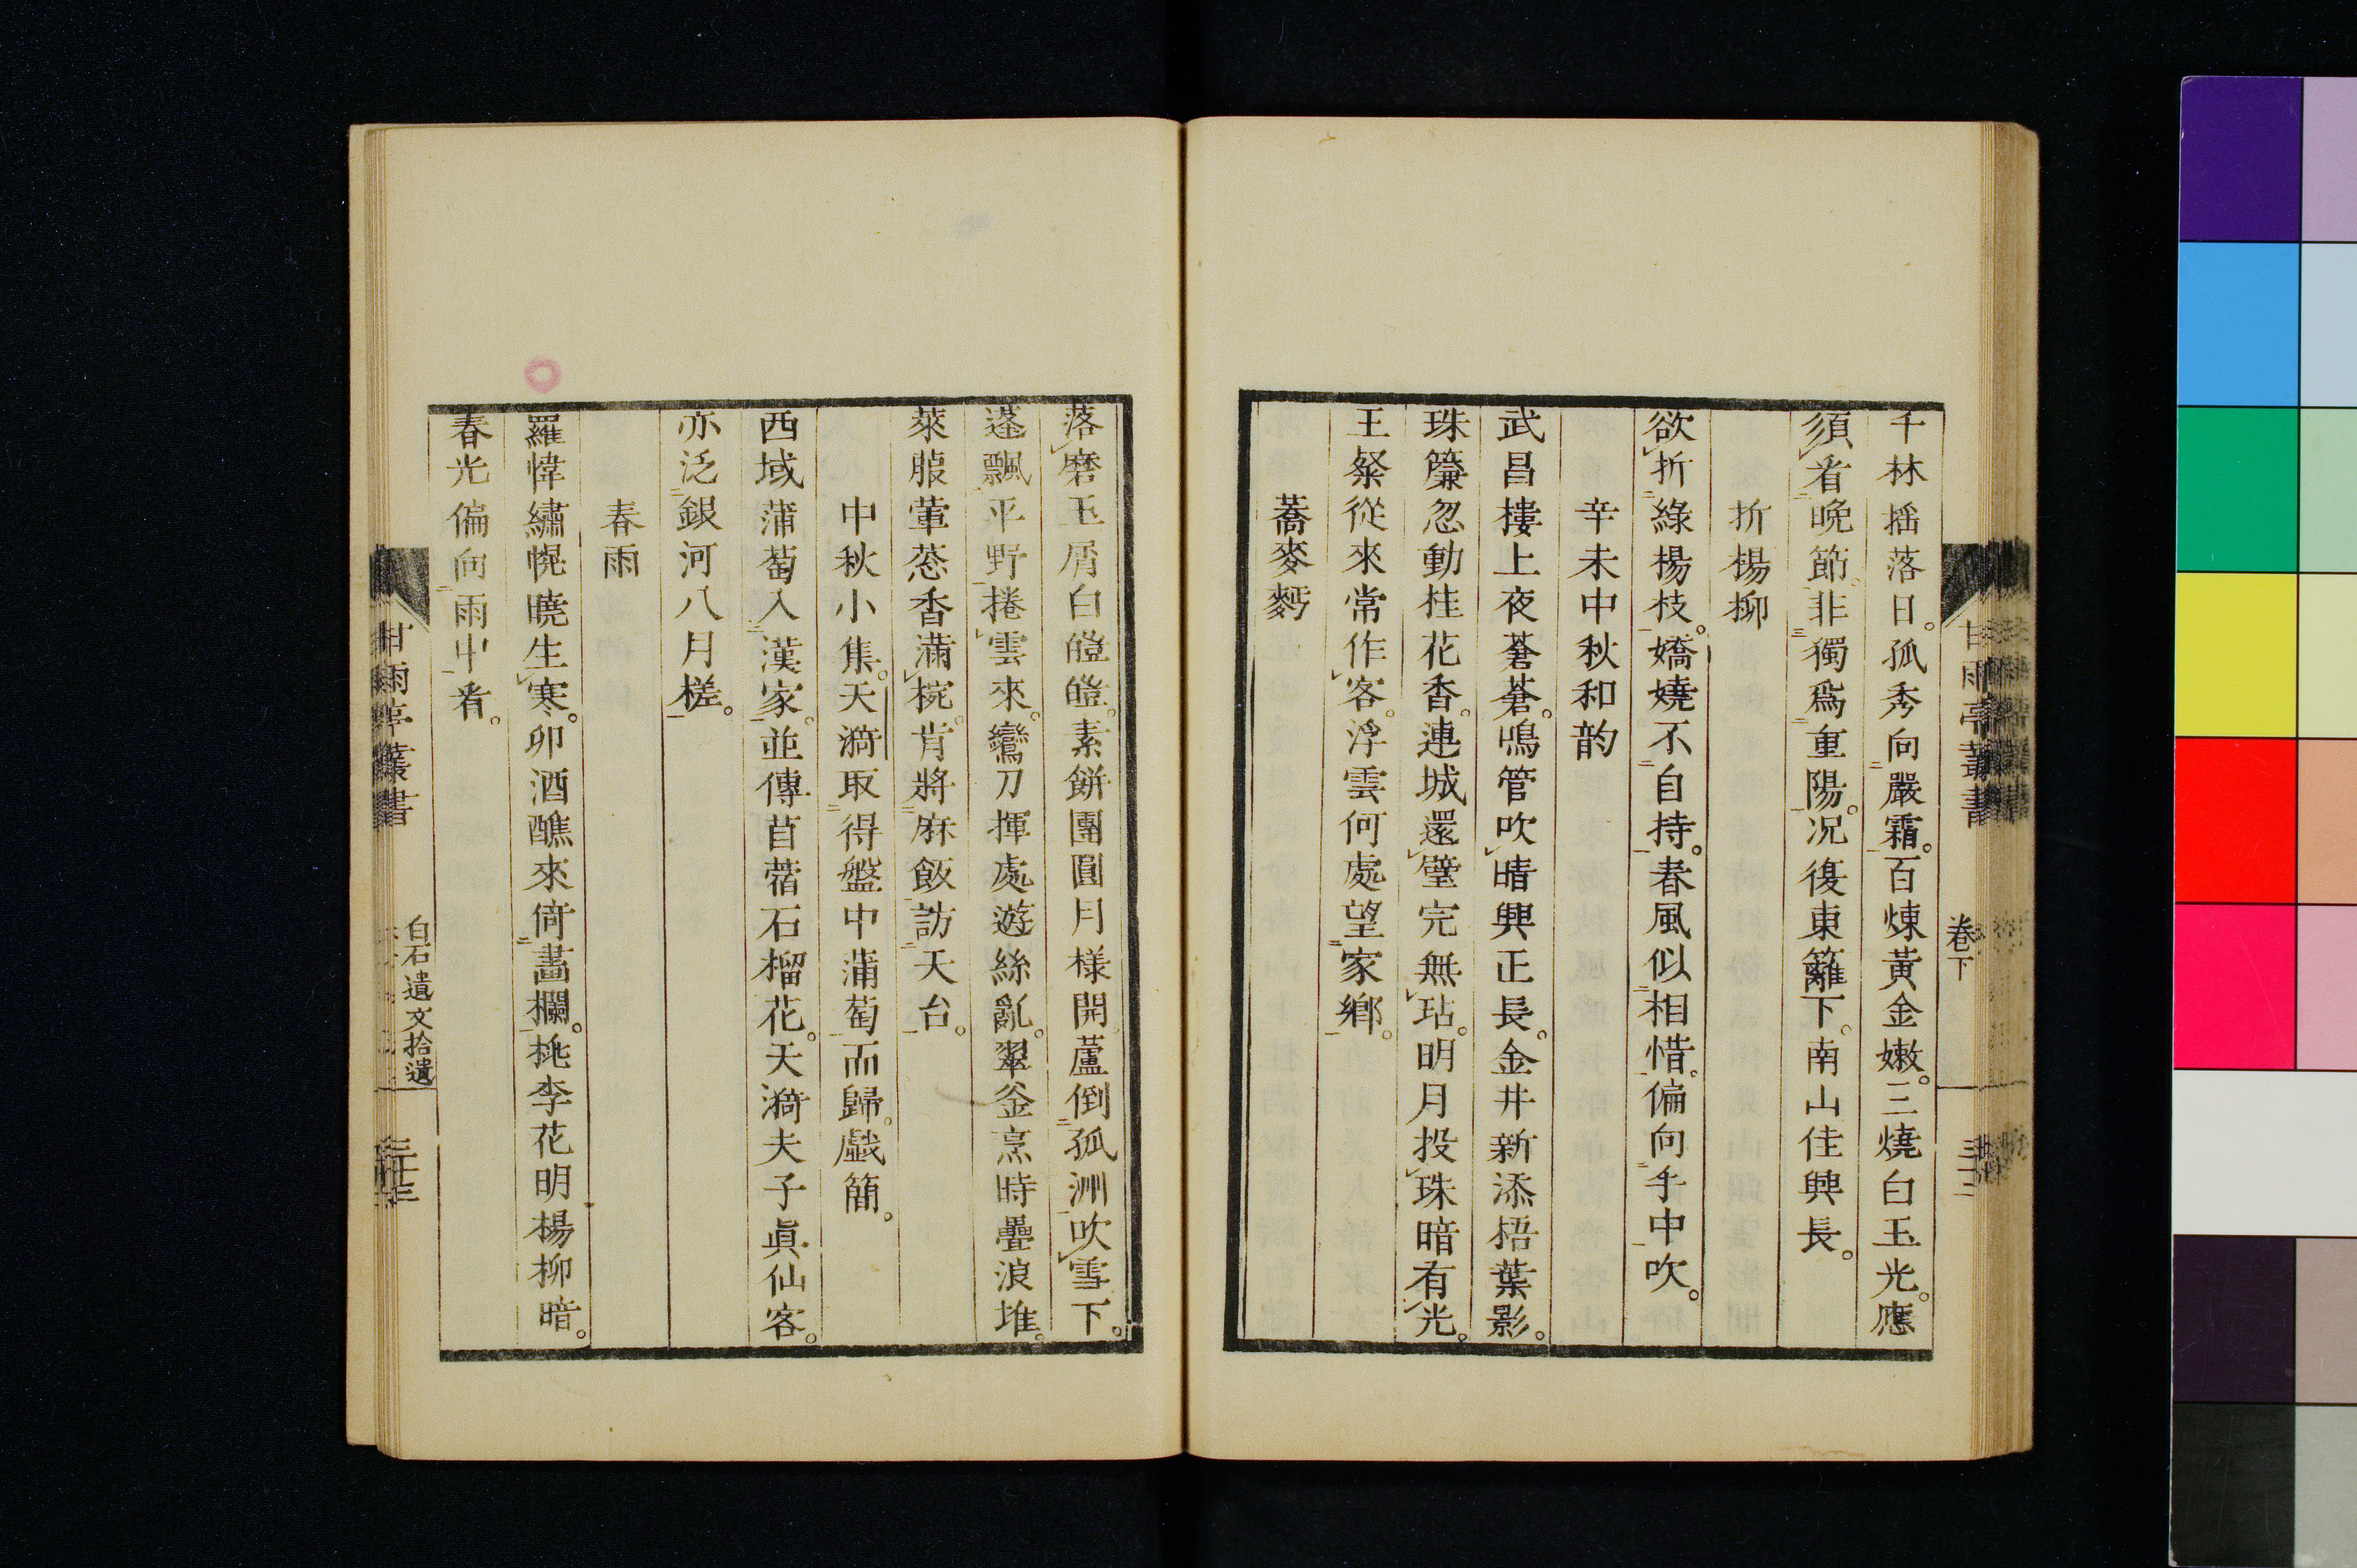 千林搖落日。孤秀向嚴霜。百煉黃金嫩。三燒白玉光。應
須看晩節。非獨爲重陽。況復東籬下。南山佳興長。
折楊柳
欲折綠楊枝。嬌嬈不自持。春風似相惜。偏向手中吹。
辛未中秋和韵
武昌樓上夜蒼蒼。鳴管吹晴興正長。金井新添梧葉影。
珠簾忽動桂花香。連城還璧完無玷。明月投珠暗有光。
王粲從來常作客。浮雲何處望家鄕。
蕎麥麪
甘雨亭叢書
卷下
三十二
落磨玉屑白皚皚。素餠團圓月樣開。蘆倒孤洲吹雪下。
蓬飄平野捲雲來。鸞刀揮處遊絲亂。翠釜烹時疊浪堆。
萊菔葷葱香滿椀。肯將麻飯訪天台。
中秋小集。天漪取得盤中蒲萄而歸。戲簡。
西域蒲萄入漢家。並傳苜蓿石榴花。天漪夫子眞仙客。
亦泛銀河八月槎。
春雨
羅幃繡幌曉生寒。卯酒醺來倚畵欄。桃李花明楊柳暗。
春光偏向雨中看。
甘雨亭叢書
白石遺文拾遺